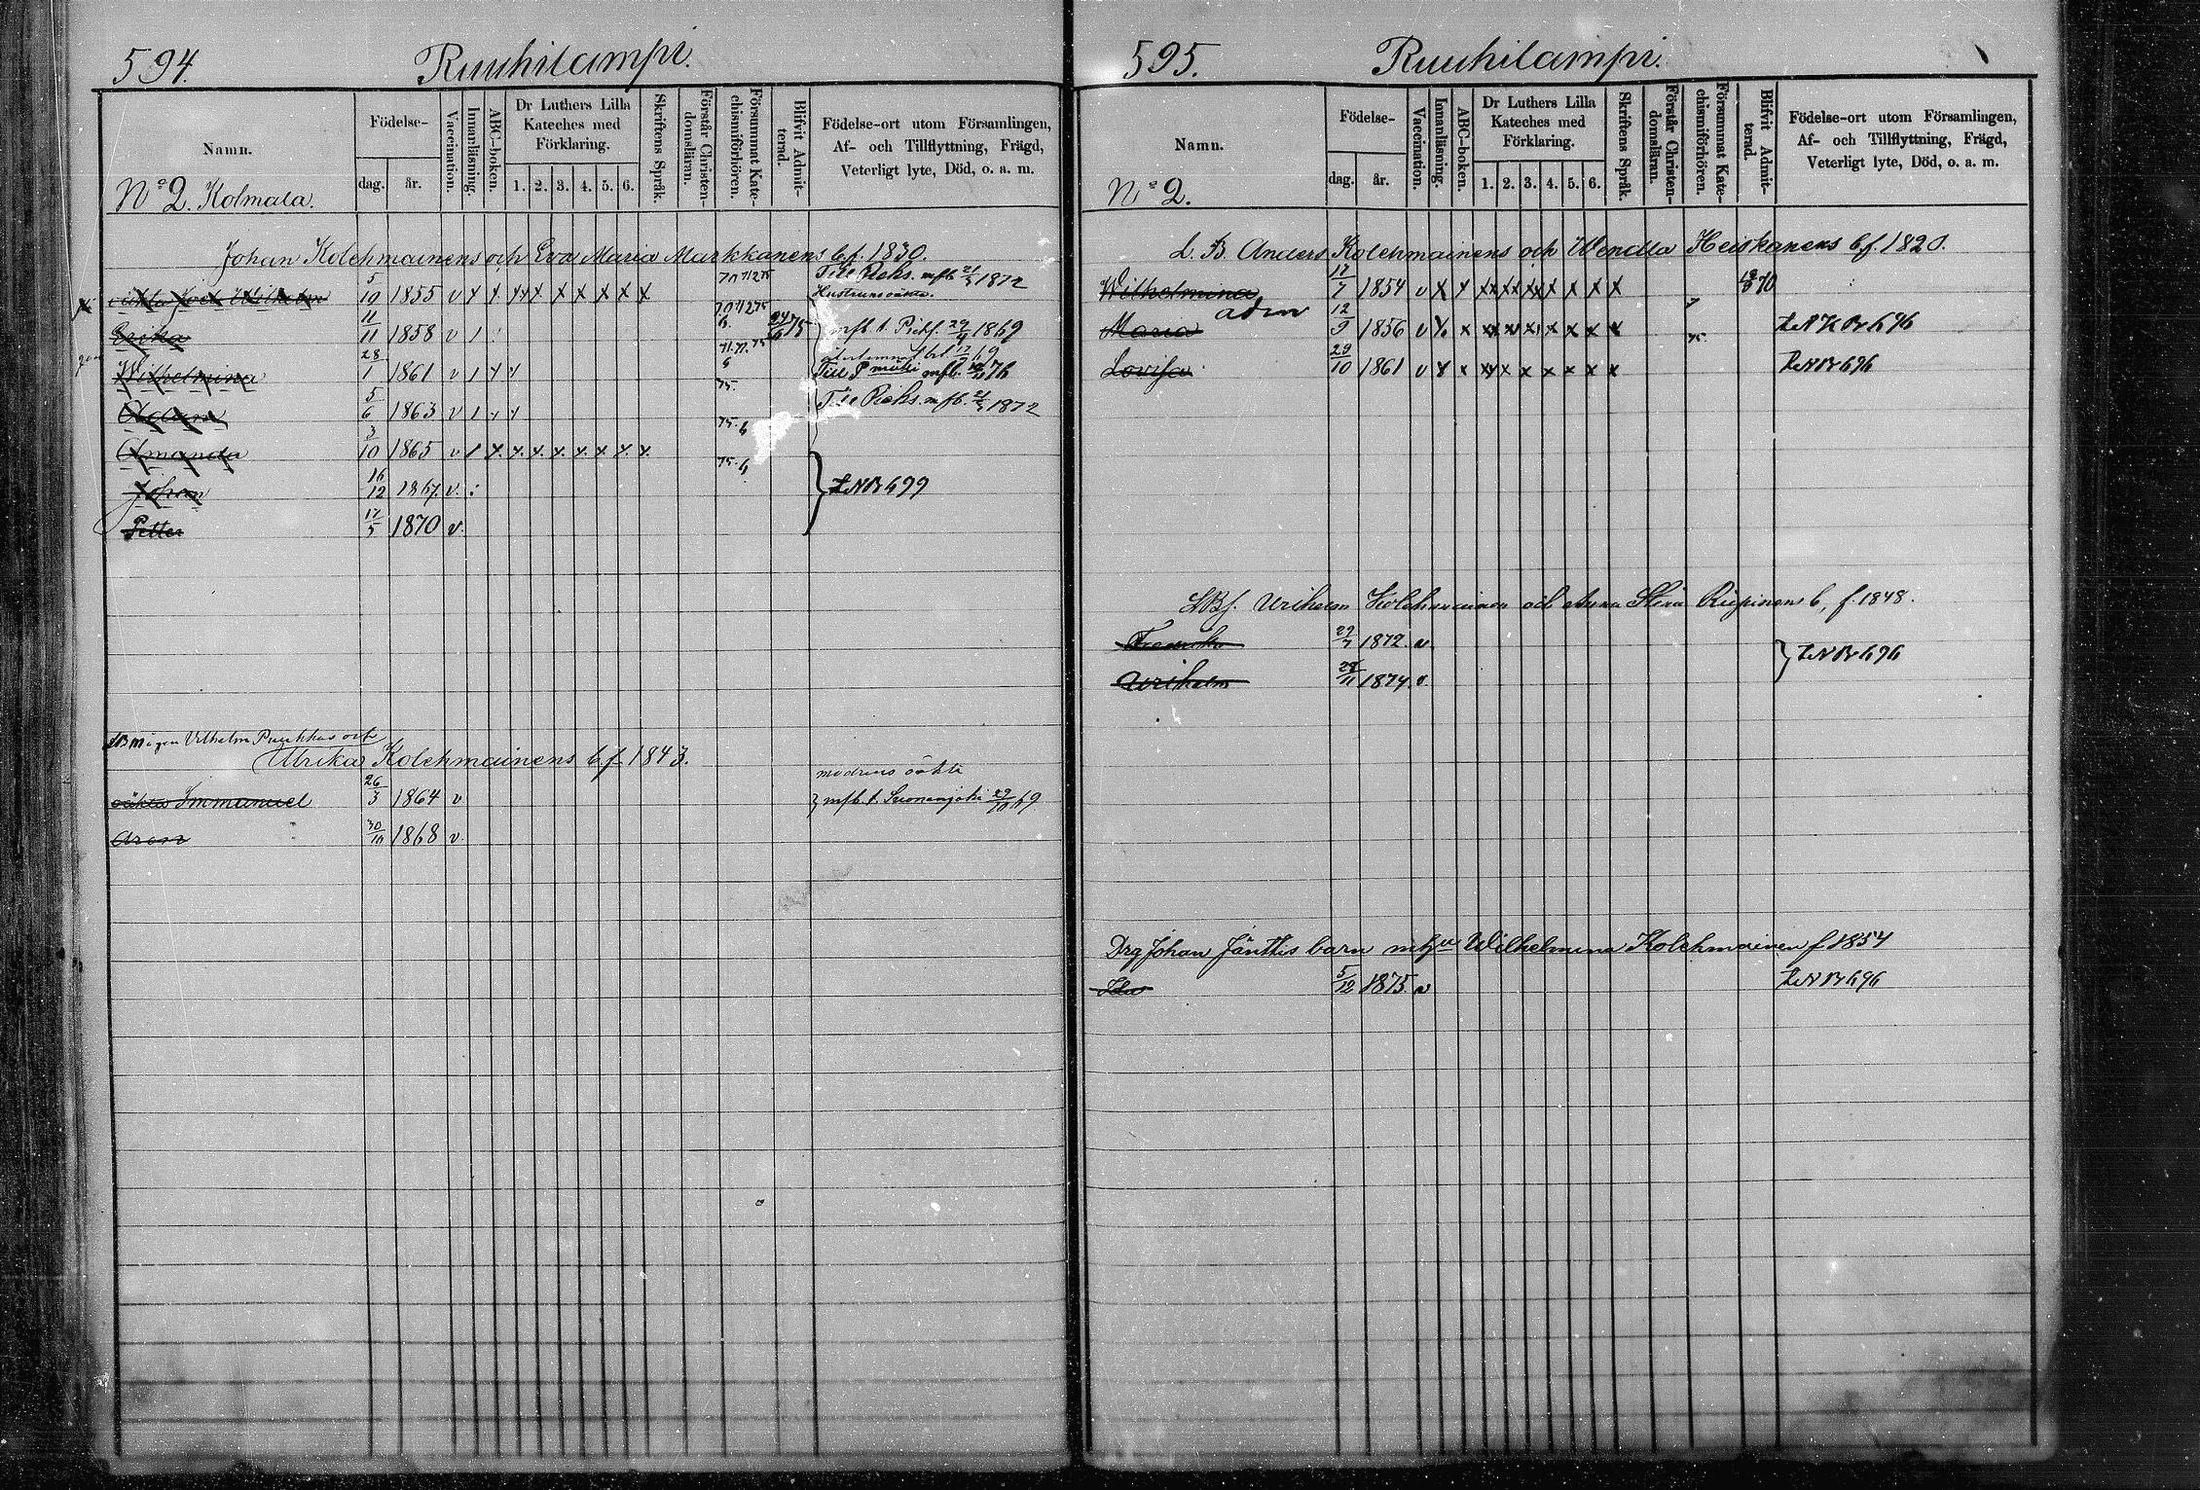 594.
Ruuhilampi.
Namn.
Födelse-
dag.
år.
Vaccination.
Innanläsning.
ABC-boken.
Dr Luthers Lilla
Kateches med
Förklaring.
1. 2. 3. 4. 5. 6.
Skriftens Språk.
Förstår Christen-
domsläran.
Försummat Kate-
chismiförhören.
Blifvit Admit-
terad.
Födelse-ort utom Församlingen,
Af- och Tillflyttning, Frägd,
Veterligt lyte, Död, o. a. m.
No 2. Kolmala.
Johan Kolehmainens och Eva Maria Markkanens b. f. 1830.
Till Pieks. mfb. 21/3 1872
5/10 1855 v x x x x x x x x x x
Hustruns oäkta.
Erika 11/11 1858 v 1 24/6 75 mfb t. Pieks. 29/9 1869
Wilhelmina 28/1 1861 v 1 x x
Till P mäki mfb. 76
5/6 1863 v 1 x x 75. Till Pieks. mfb. 21/3 1872
Amanda 3/10 1865 v 1 x. x. x. x. x. x. x. x. 75. 6
Johan 16/12 1867. v. : 75. 6
LNB 699
Petter 17/5 1870 v.
Vilhelm Puukkas och
Ulrika Kolehmainens b. f. 1843.
modrens oäkta
oäkta Immanuel 26/3 1864 v
mfb. t. Suonenjoki 29/10 69
Aron 30/10 1868 v
595.
Ruuhilampi.
Namn.
Födelse-
dag.
år.
Vaccination.
Innanläsning.
ABC-boken.
Dr Luthers Lilla
Kateches med
Förklaring.
1. 2. 3. 4. 5. 6.
Skriftens Språk.
Förstår Christen-
domsläran.
Försummat Kate-
chismiförhören.
Blifvit Admit-
terad.
Födelse-ort utom Församlingen,
Af- och Tillflyttning, Frägd,
Veterligt lyte, Död, o. a. m.
No 2.
L. B. Anders Kolehmainens och Wendla Heiskanens b. f. 1820.
Wilhelmina 17/7 1854 v x x x x x x x x x 70
adm
Maria 12/9 1856 v x x x x x x x x LNB 696
Lovisa 29/10 1861 v x x x x x x x x x 75. LNB 696
LBf. Wilhelm Kolehmainen och Anna Stina Riipinens b. f. 1848.
Fredrika 29/7 1872. v.
LNB 696
Wilhelm 28/11 1874. v.
Drg Johan Jänttis barn m hu Wilhelmina Kolehmainen f. 1854
Ida 5/12 1875. v LNB 696